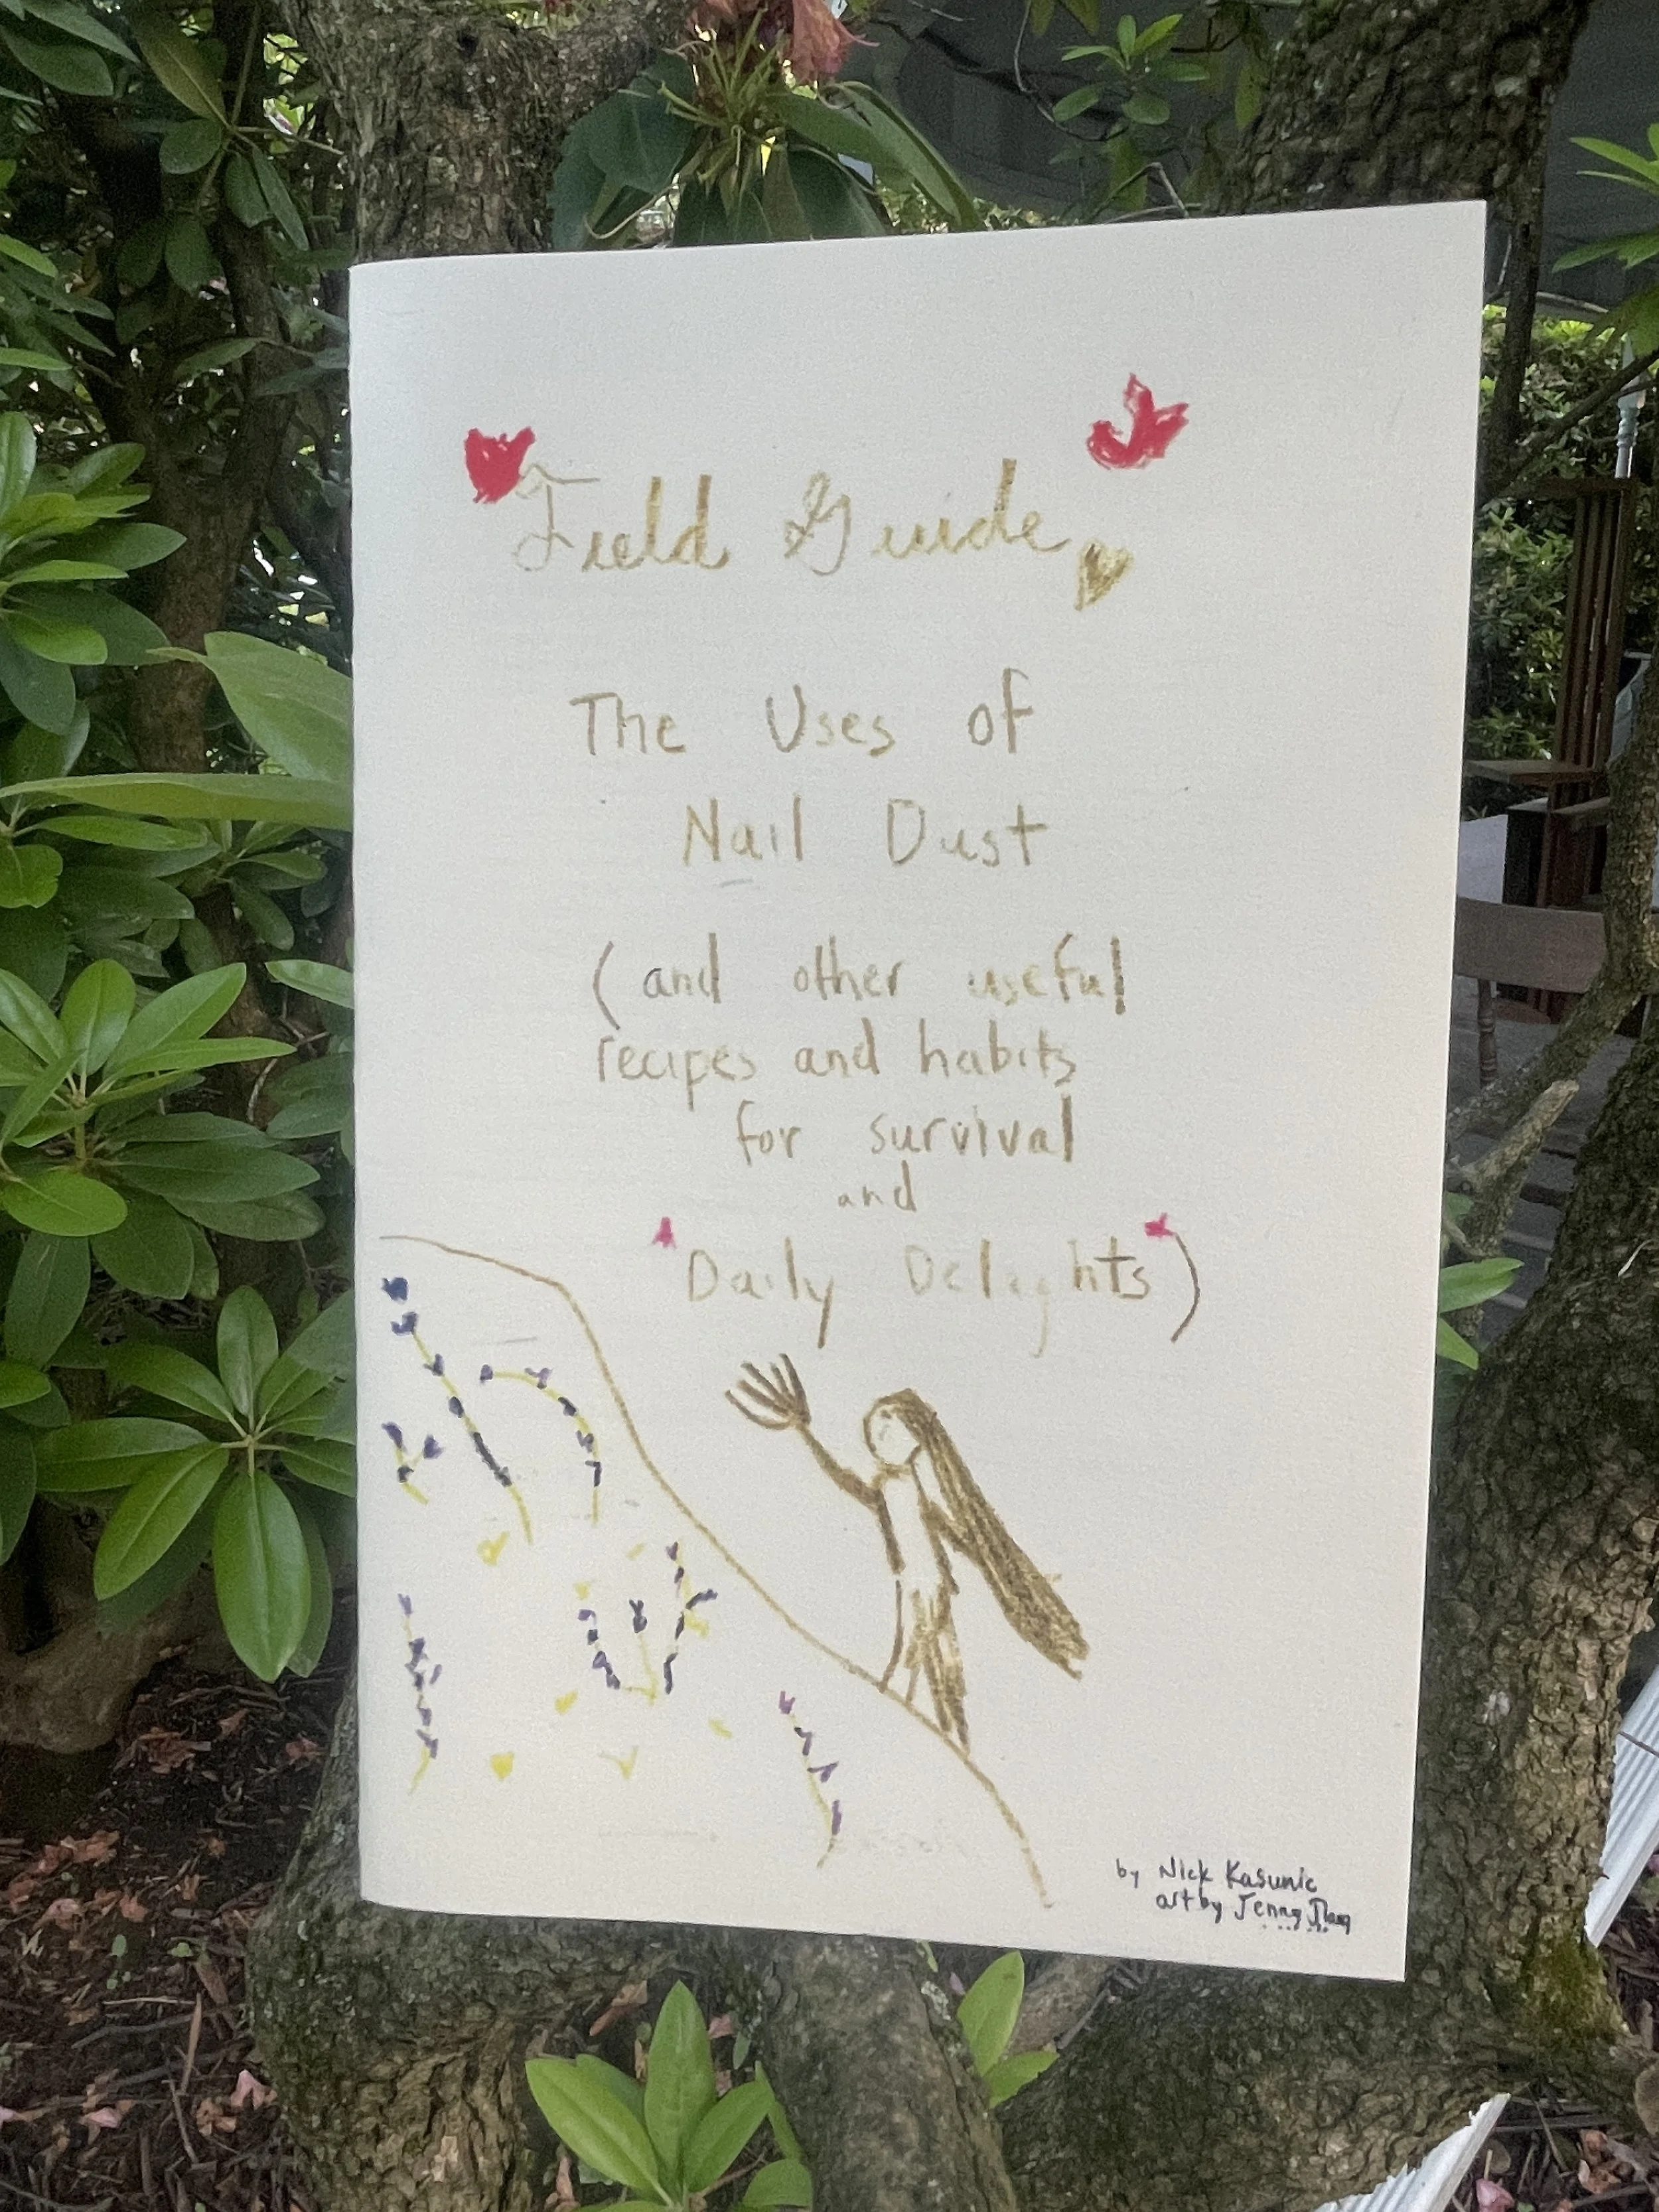 Field Guide
The Uses of
Nail Dust
(and other useful
recipes and habits
for survival
and
Daily Delights)
by Nick Kasunic
art by Jenny